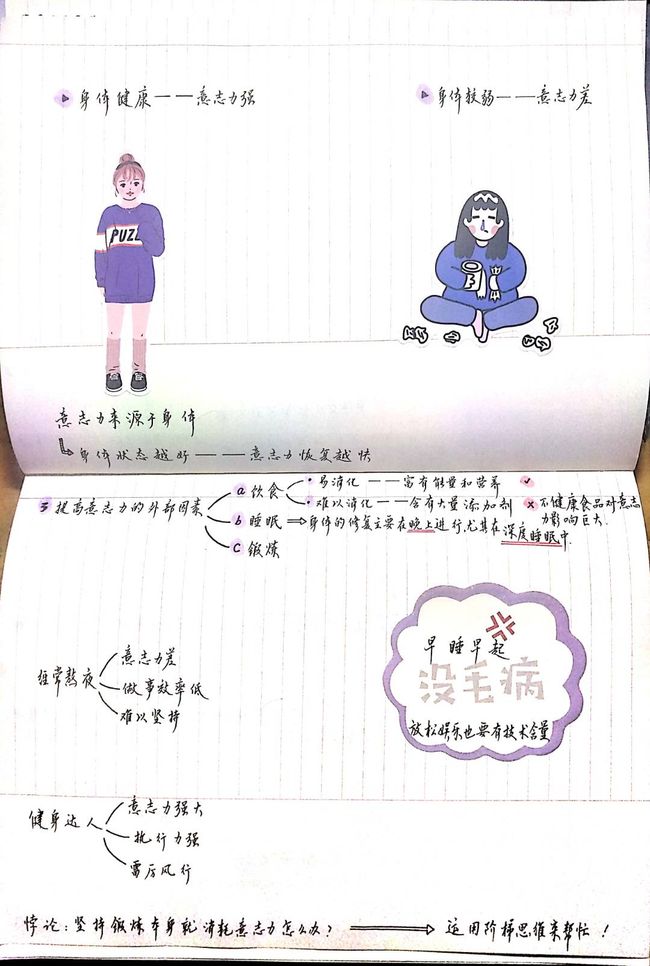 身体健康——意志力强
身体较弱——意志力差
PUZZ
意志力来源于身体
身体状态越好——意志力恢复越快
3 提高意志力的外部因素
a 饮食
• 易消化——富有能量和营养 ✓
• 难以消化——含有大量添加剂 × 不健康食品对意志
力影响巨大.
b 睡眠 ⇒ 身体的修复主要在晚上进行,尤其在深度睡眠中.
c 锻炼
经常熬夜
意志力差
做事效率低
难以坚持
早睡早起
没毛病
放松娱乐也要有技术含量
健身达人
意志力强大
执行力强
雷厉风行
悖论:坚持锻炼本身就消耗意志力怎么办? ⟹ 运用阶梯思维来帮忙!